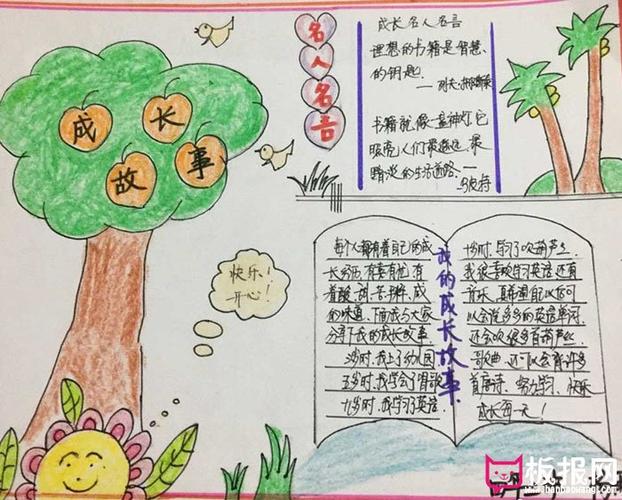 成长故事
名人名言
成长名人名言
理想的书籍是智慧
的钥匙
书籍就像一盏神灯,它
照亮人们最遥远、最
暗淡的生活道路
快乐!
开心!
我的成长故事
每个人都有着自己的成
长经历,有喜有忧,有
着酸、甜、苦、辣、咸
的味道,下面我与大家
分享下我的成长故事.
3岁时,我上了幼儿园
五岁时,我学会了唱歌
九岁时,我学习英语.
十岁时,学习了吹葫芦丝.
我很喜欢学习英语还有
音乐,真希望自己以后可
以会说多多的英语单词
还会吹很多首葫芦丝
歌曲,还可以会背许多
首唐诗,努力学习,快乐
成长每一天!
板报网